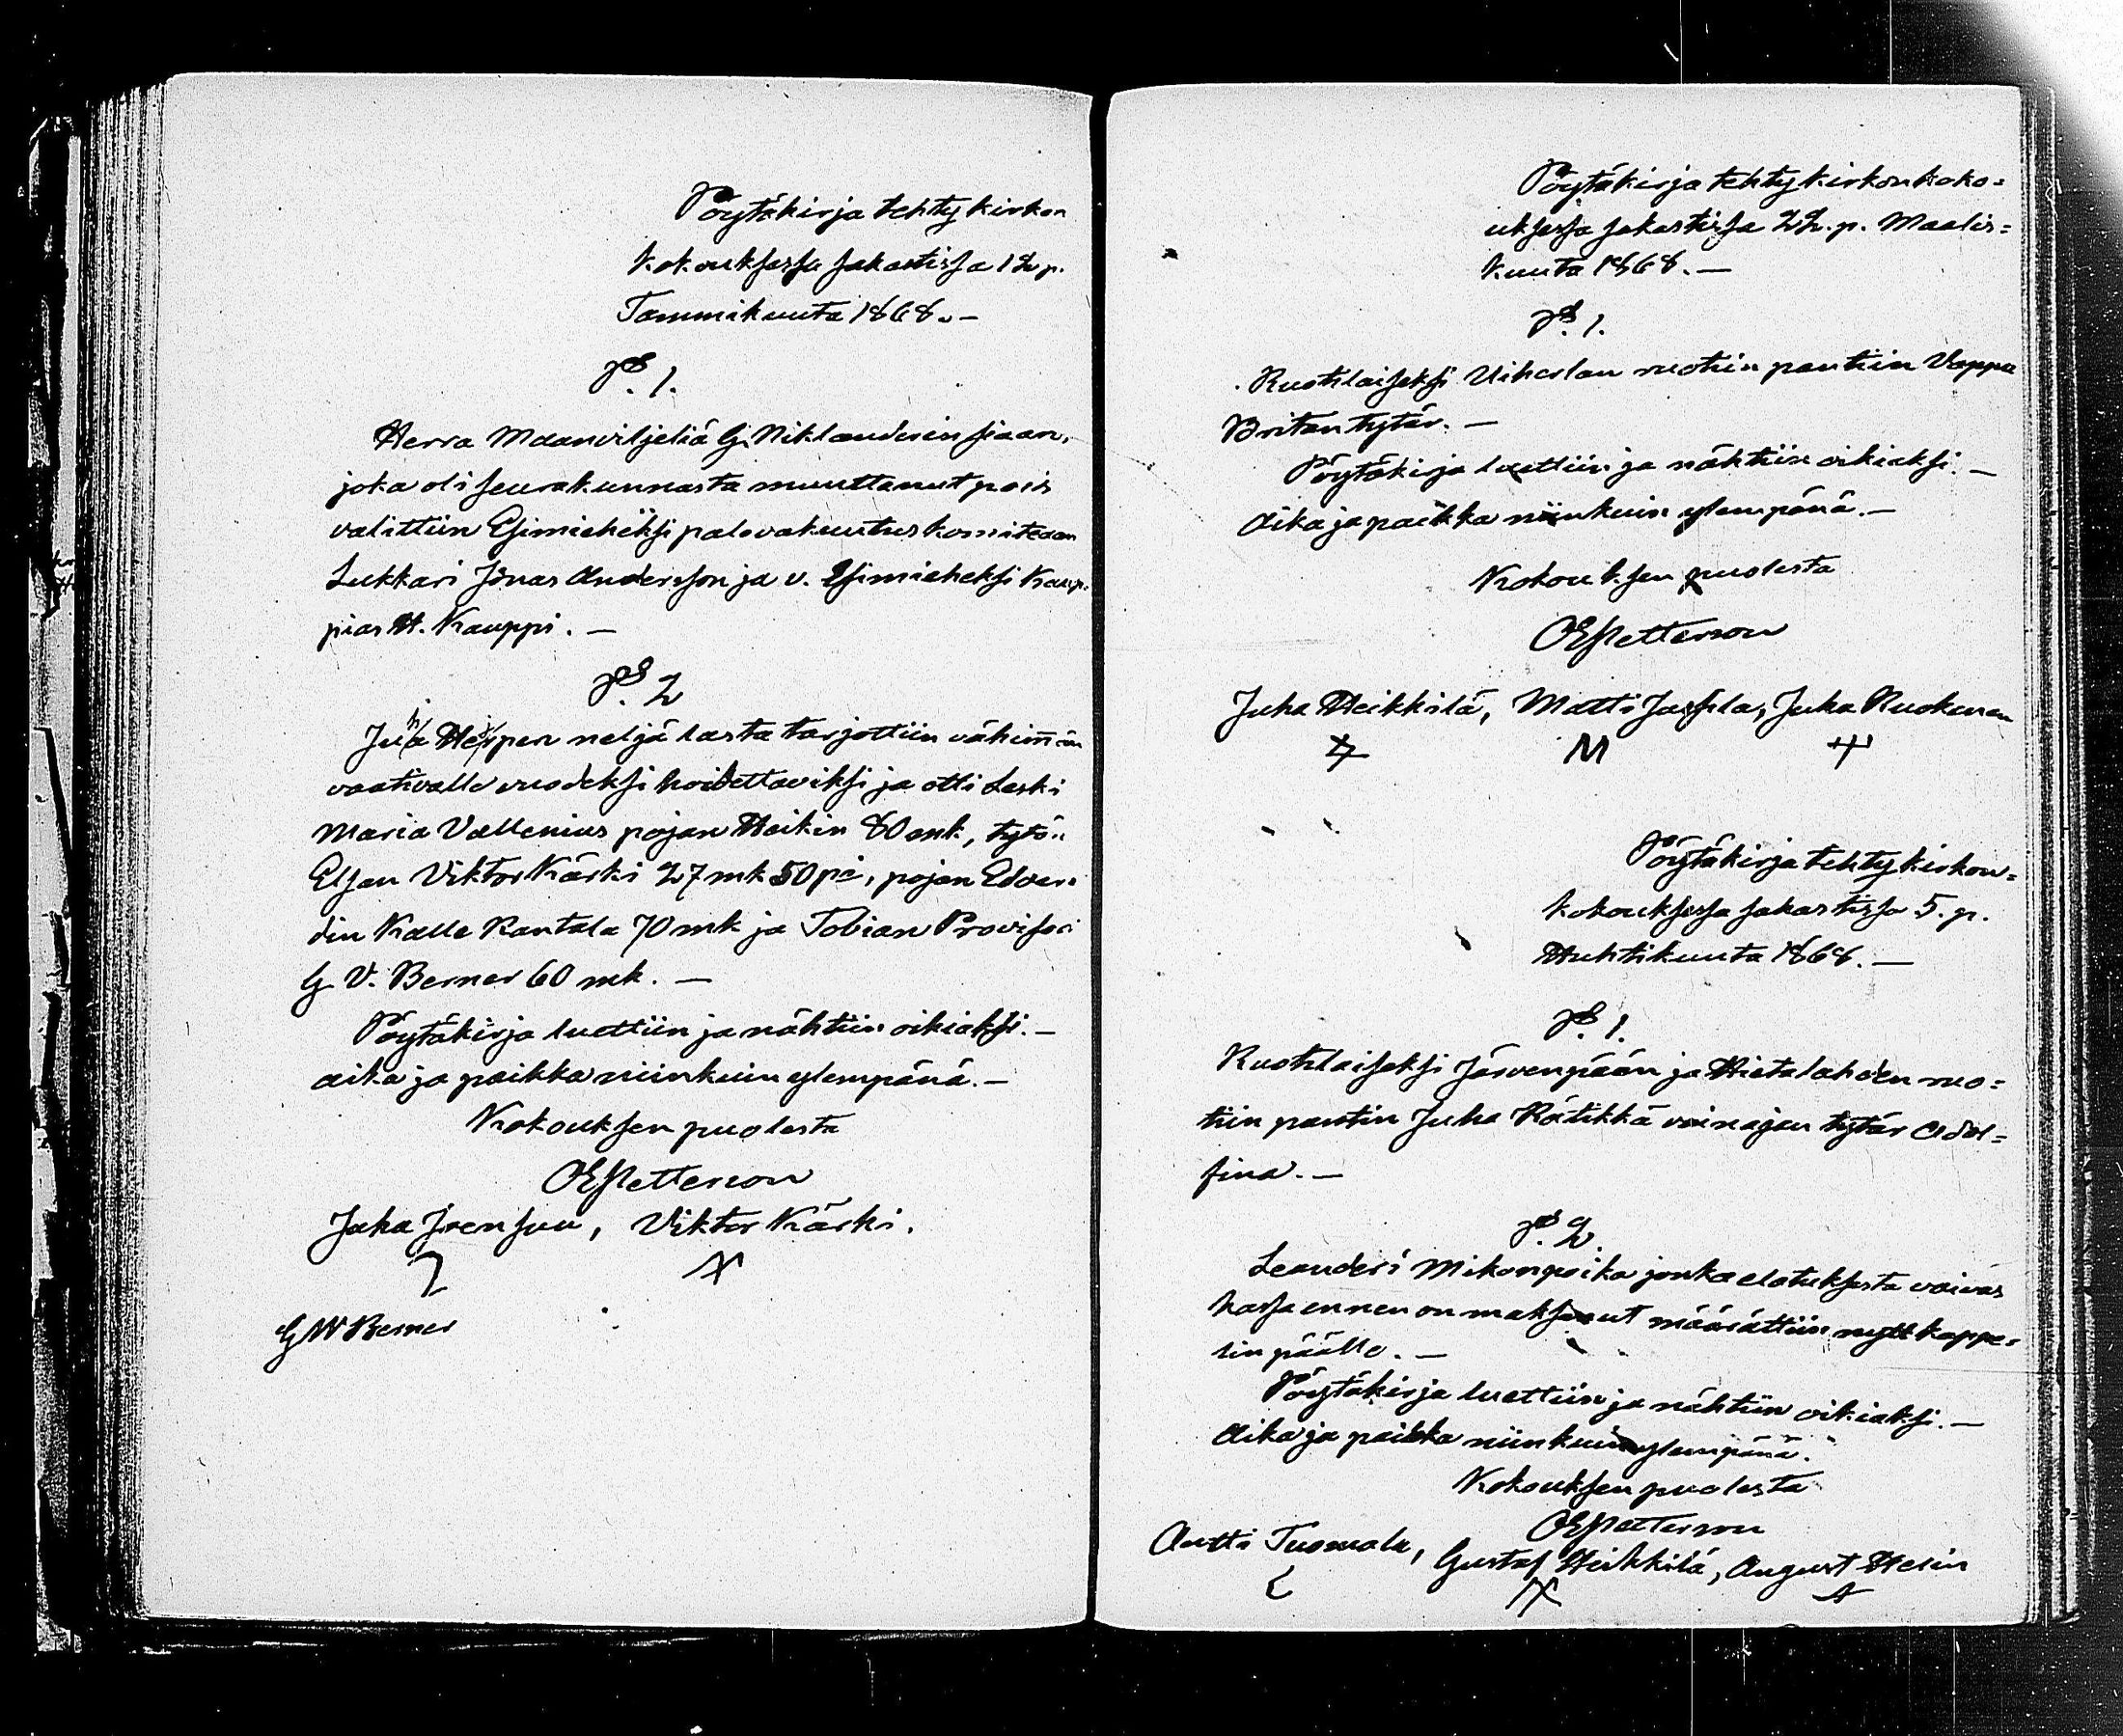 Pöytäkirja tehty kirkon
kokouksessa sakastissa 12 p.
Tammikuuta 1868. –
§. 1.
Herra Maanviljeliä G. Niklanderin siaan,
joka oli seurakunnasta muuttanut pois
valittiin Esimieheksi palovakuutus komiteaan
Lukkari Jonas Andersson ja v. Esimieheksi Kaup-
pias H. Kauppi. –
§. 2
Juha neljä lasta tarjottiin vähimmän
vaativalle vuodeksi hoidettaviksi ja otti Leski
Maria Vallenius pojan Heikin 80 mk, tytön
Elsan Viktor Kärki 27 mk 50 pä, pojan Edvar-
din Kalle Rantala 70 mk ja Tobian Provisori
G. V. Berner 60 mk. –
Pöytäkirja luettiin ja nähtiin oikiaksi. –
aika ja paikka niinkuin ylempänä. –
Kokouksen puolesta
OEPetterson
Juha Joensuu, Viktor Kärki.
GWBerner
Pöytäkirja tehty kirkonkoko=
uksessa sakastissa 22. p. Maalis=
kuuta 1868. –
§. 1.
Ruotilaiseksi Uiherlan ruotiin pantiin Vappu
Britan tytär. –
Pöytäkirja luettiin ja nähtiin oikiaksi. –
Aika ja paikka niinkuin ylempänä. –
Kokouksen puolesta
OEPetterson
Juha Heikkilä, Matti Jussila, Juha Ruokonen
M
Pöytäkirja tehty kirkon=
kokouksessa sakastissa 5. p.
Huhtikuuta 1868. –
§. 1.
Ruotilaiseksi Järvenpään ja Hietalahden ruo=
tiin pantiin Juha Rätikkä vainajan tytär Adol=
fina. –
§. 2.
Leanderi Mikonpoika jonka elatuksesta vaivas
kassa ennen on maksanut määrättiin nytt kappe-
lin päälle. –
Pöytäkirja luettiin ja nähtiin oikiaksi. –
Aika ja paikka niinkuin ylempänä.
Kokouksen puolesta
OEPetterson
Antti Tuomala, Gustaf Heikkilä, August Helin